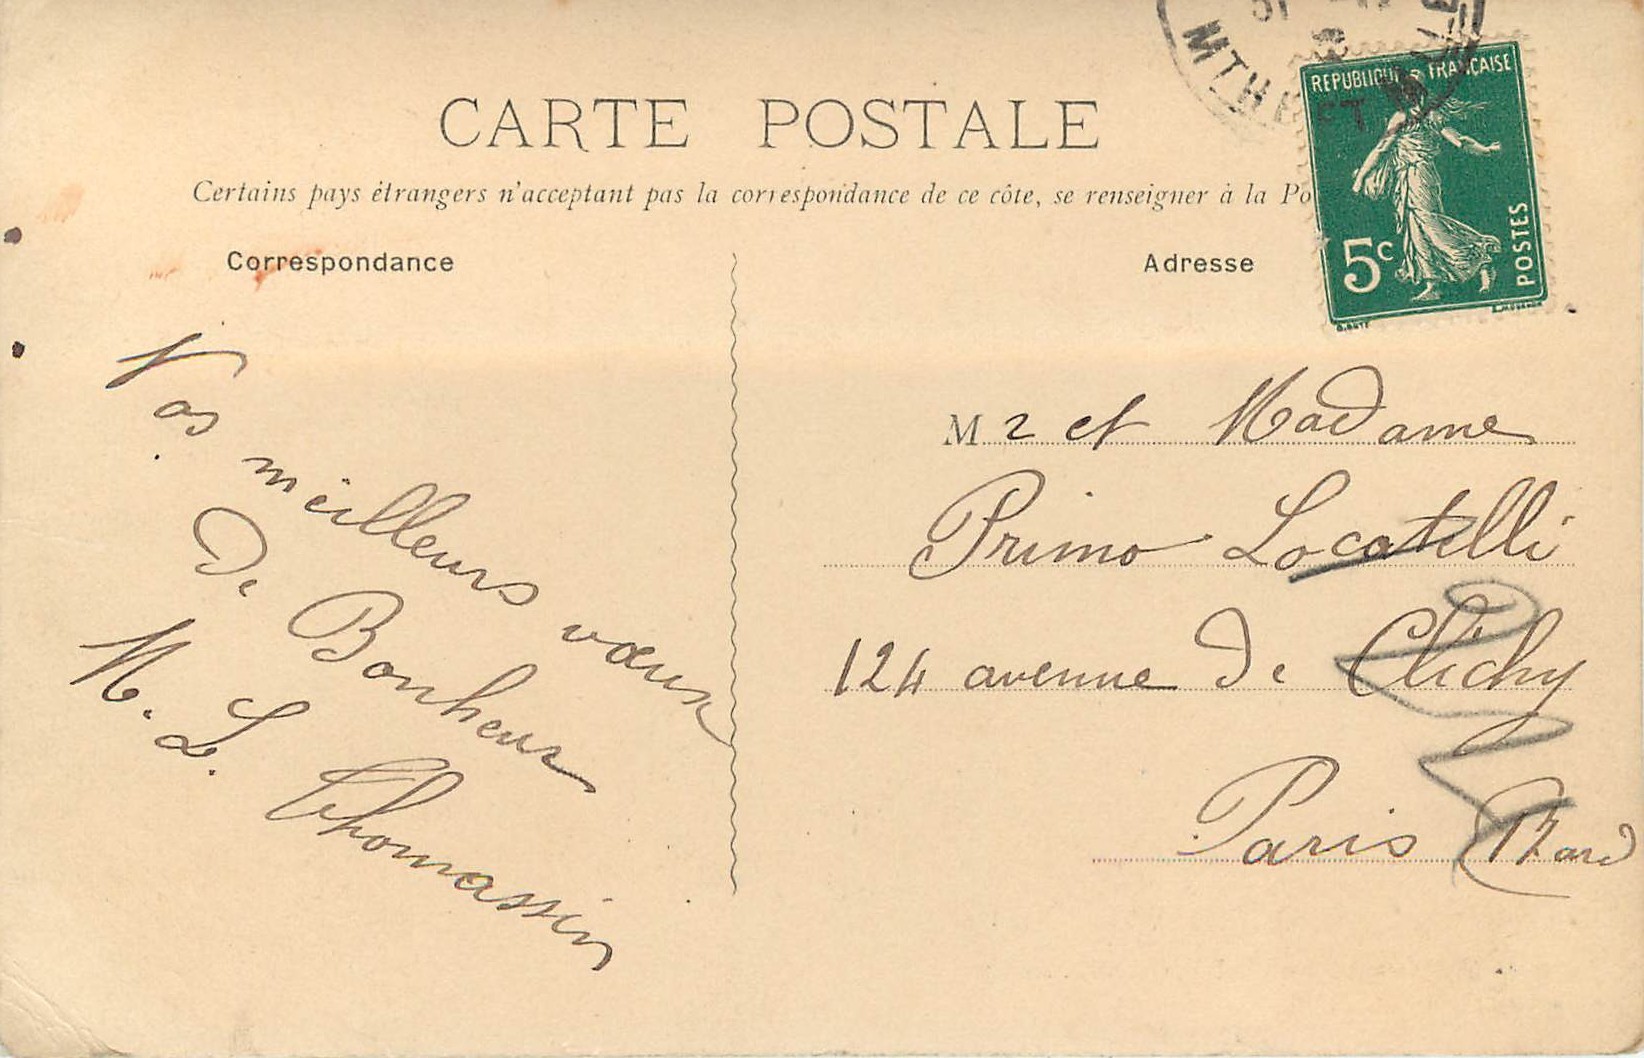 CARTE POSTALE
Certains pays étrangers n'acceptant pas la correspondance de ce côte, se renseigner à la Po
Correspondance
Adresse
MTHE ET
REPUBLIQUE FRANÇAISE
5c
POSTES
Nos
meilleurs vœux
de Bonheur
M. L. Thomassin
M r et Madame
Primo Locatelli
124 avenue de Clichy
Paris